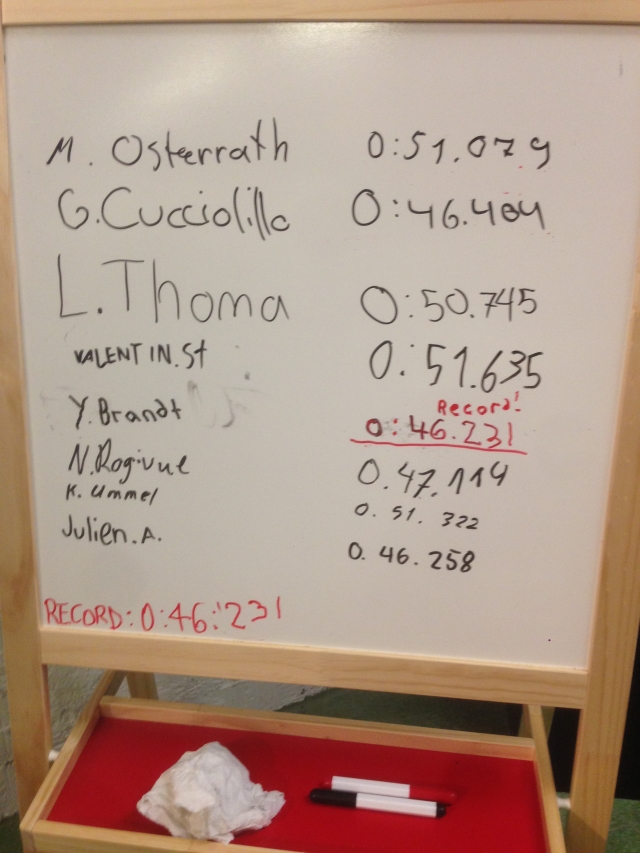 M. Osterrath 0:51.079
G.Cucciolillo 0:46.404
L.Thoma 0:50.745
VALENTIN.St 0:51.635
Record!
Y.Brandt 0:46.231
N.Rogivue 0.47.114
K. Ummel 0. 51. 322
Julien.A. 0. 46. 258
RECORD: 0:46:231